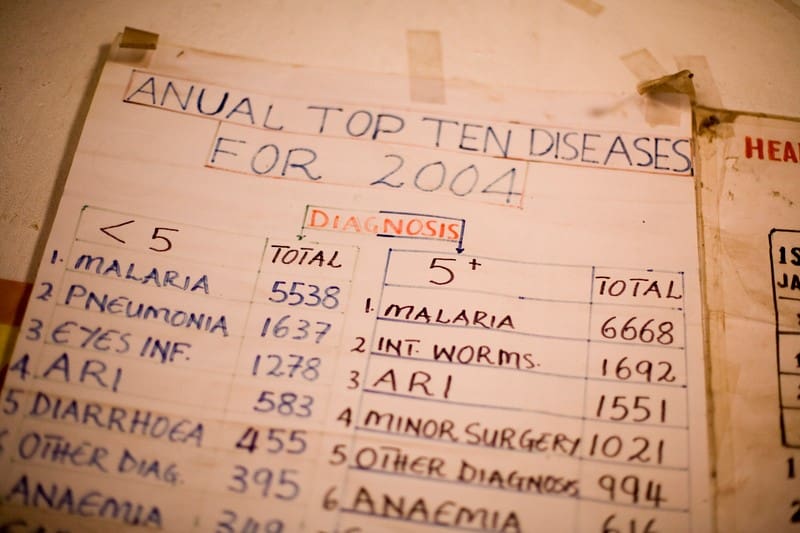 ANUAL TOP TEN DISEASES
FOR 2004
DIAGNOSIS
< 5 TOTAL
1. MALARIA 5538
2 PNEUMONIA 1637
3 EYES INF. 1278
4. ARI 583
5 DIARRHOEA 455
OTHER DIAG. 395
ANAEMIA 349
5+ TOTAL
1. MALARIA 6668
2 INT. WORMS. 1692
3 ARI 1551
4 MINOR SURGERY 1021
5 OTHER DIAGNOSIS 994
6 ANAEMIA 616